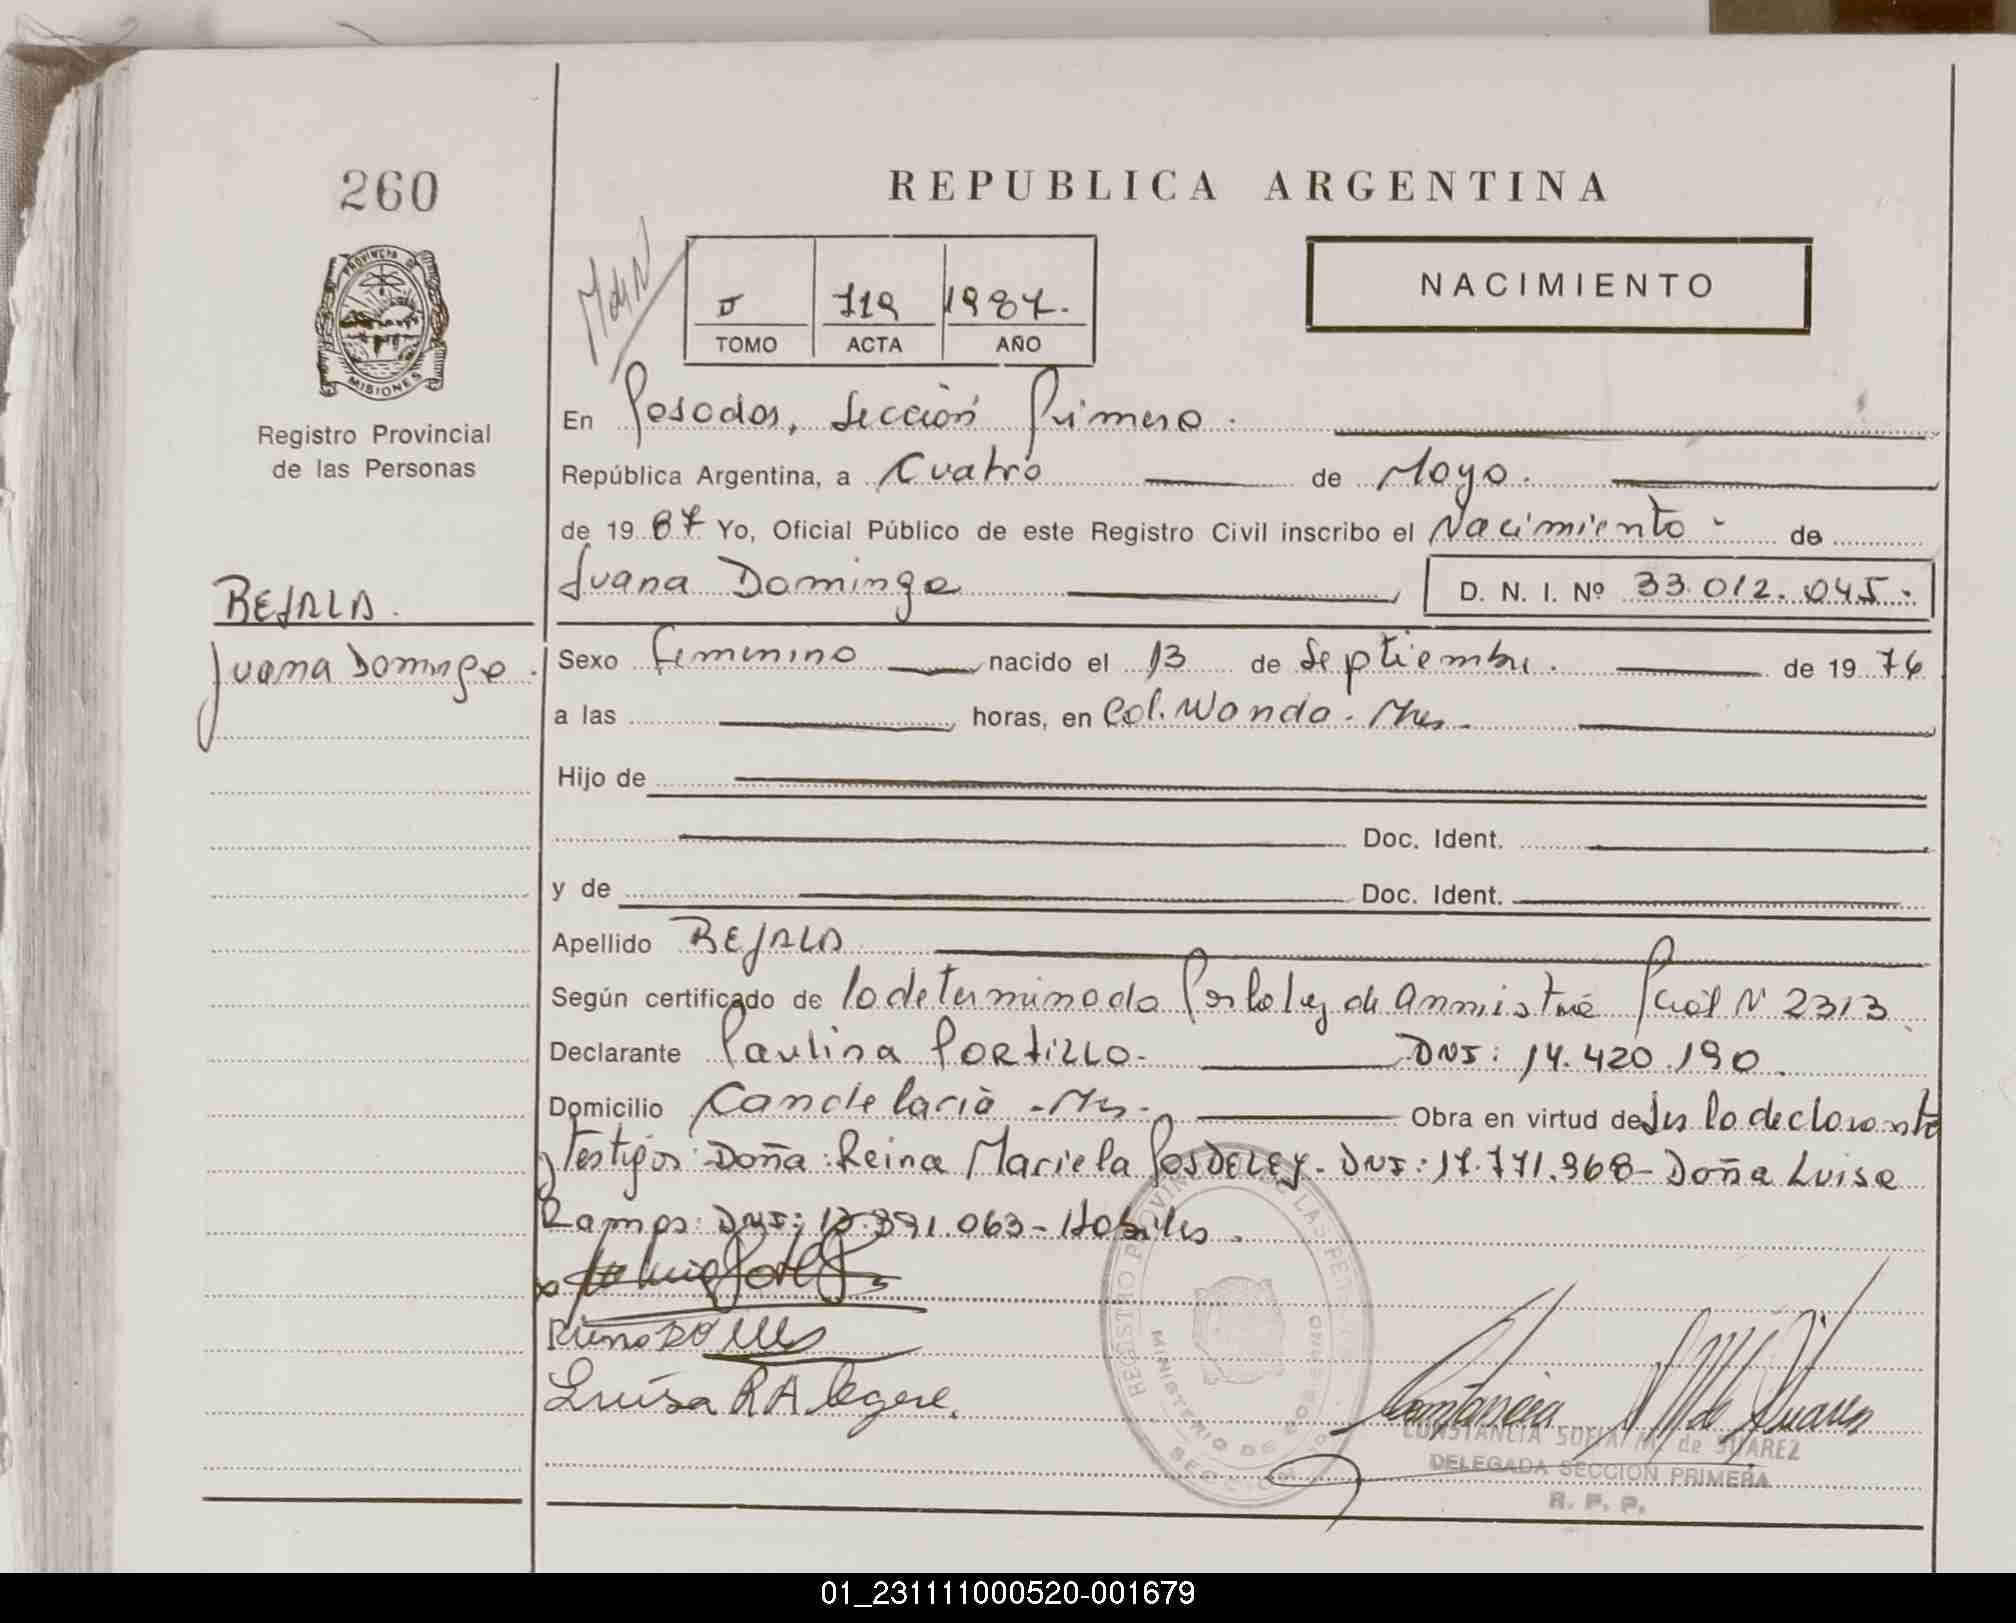 260
REPUBLICA ARGENTINA
PROVINCIA DE
MISIONES
Registro Provincial
de las Personas
NACIMIENTO
719 1987.
TOMO ACTA AÑO
En Posadas, Sección Primera.
República Argentina, a Cuatro de Mayo.
de 19 87 Yo, Oficial Público de este Registro Civil inscribo el Nacimiento de
Juana Dominga D. N. I. Nº 33.012.045.
BEJALA.
Juana Dominga.
Sexo Femenino nacido el 13 de Septiembre. de 19 76
a las horas, en Col. Wanda - Mnes.
Hijo de
Doc. Ident.
y de Doc. Ident.
Apellido BEJALA
Según certificado de lo determinado Por la ley de Anmistía Pcial N 2313
Declarante Paulina PORTILLO. DNI: 14.420.190.
Domicilio Candelaria - Mnes - Obra en virtud de Ser la declarante
y Testigos: Doña: Reina Mariela POSDELEY. DNI: 17.771.968 - Doña Luisa
Ramos: DNI: 391.063 - Hábiles.
Luisa R Alegre.
REGISTRO PROVINCIAL DE LAS PERSONAS
MINISTERIO DE GOBIERNO
SECCION
CONSTANCIA SOFIA M. de SUAREZ
DELEGADA SECCION PRIMERA
R. P. P.
01_231111000520-001679